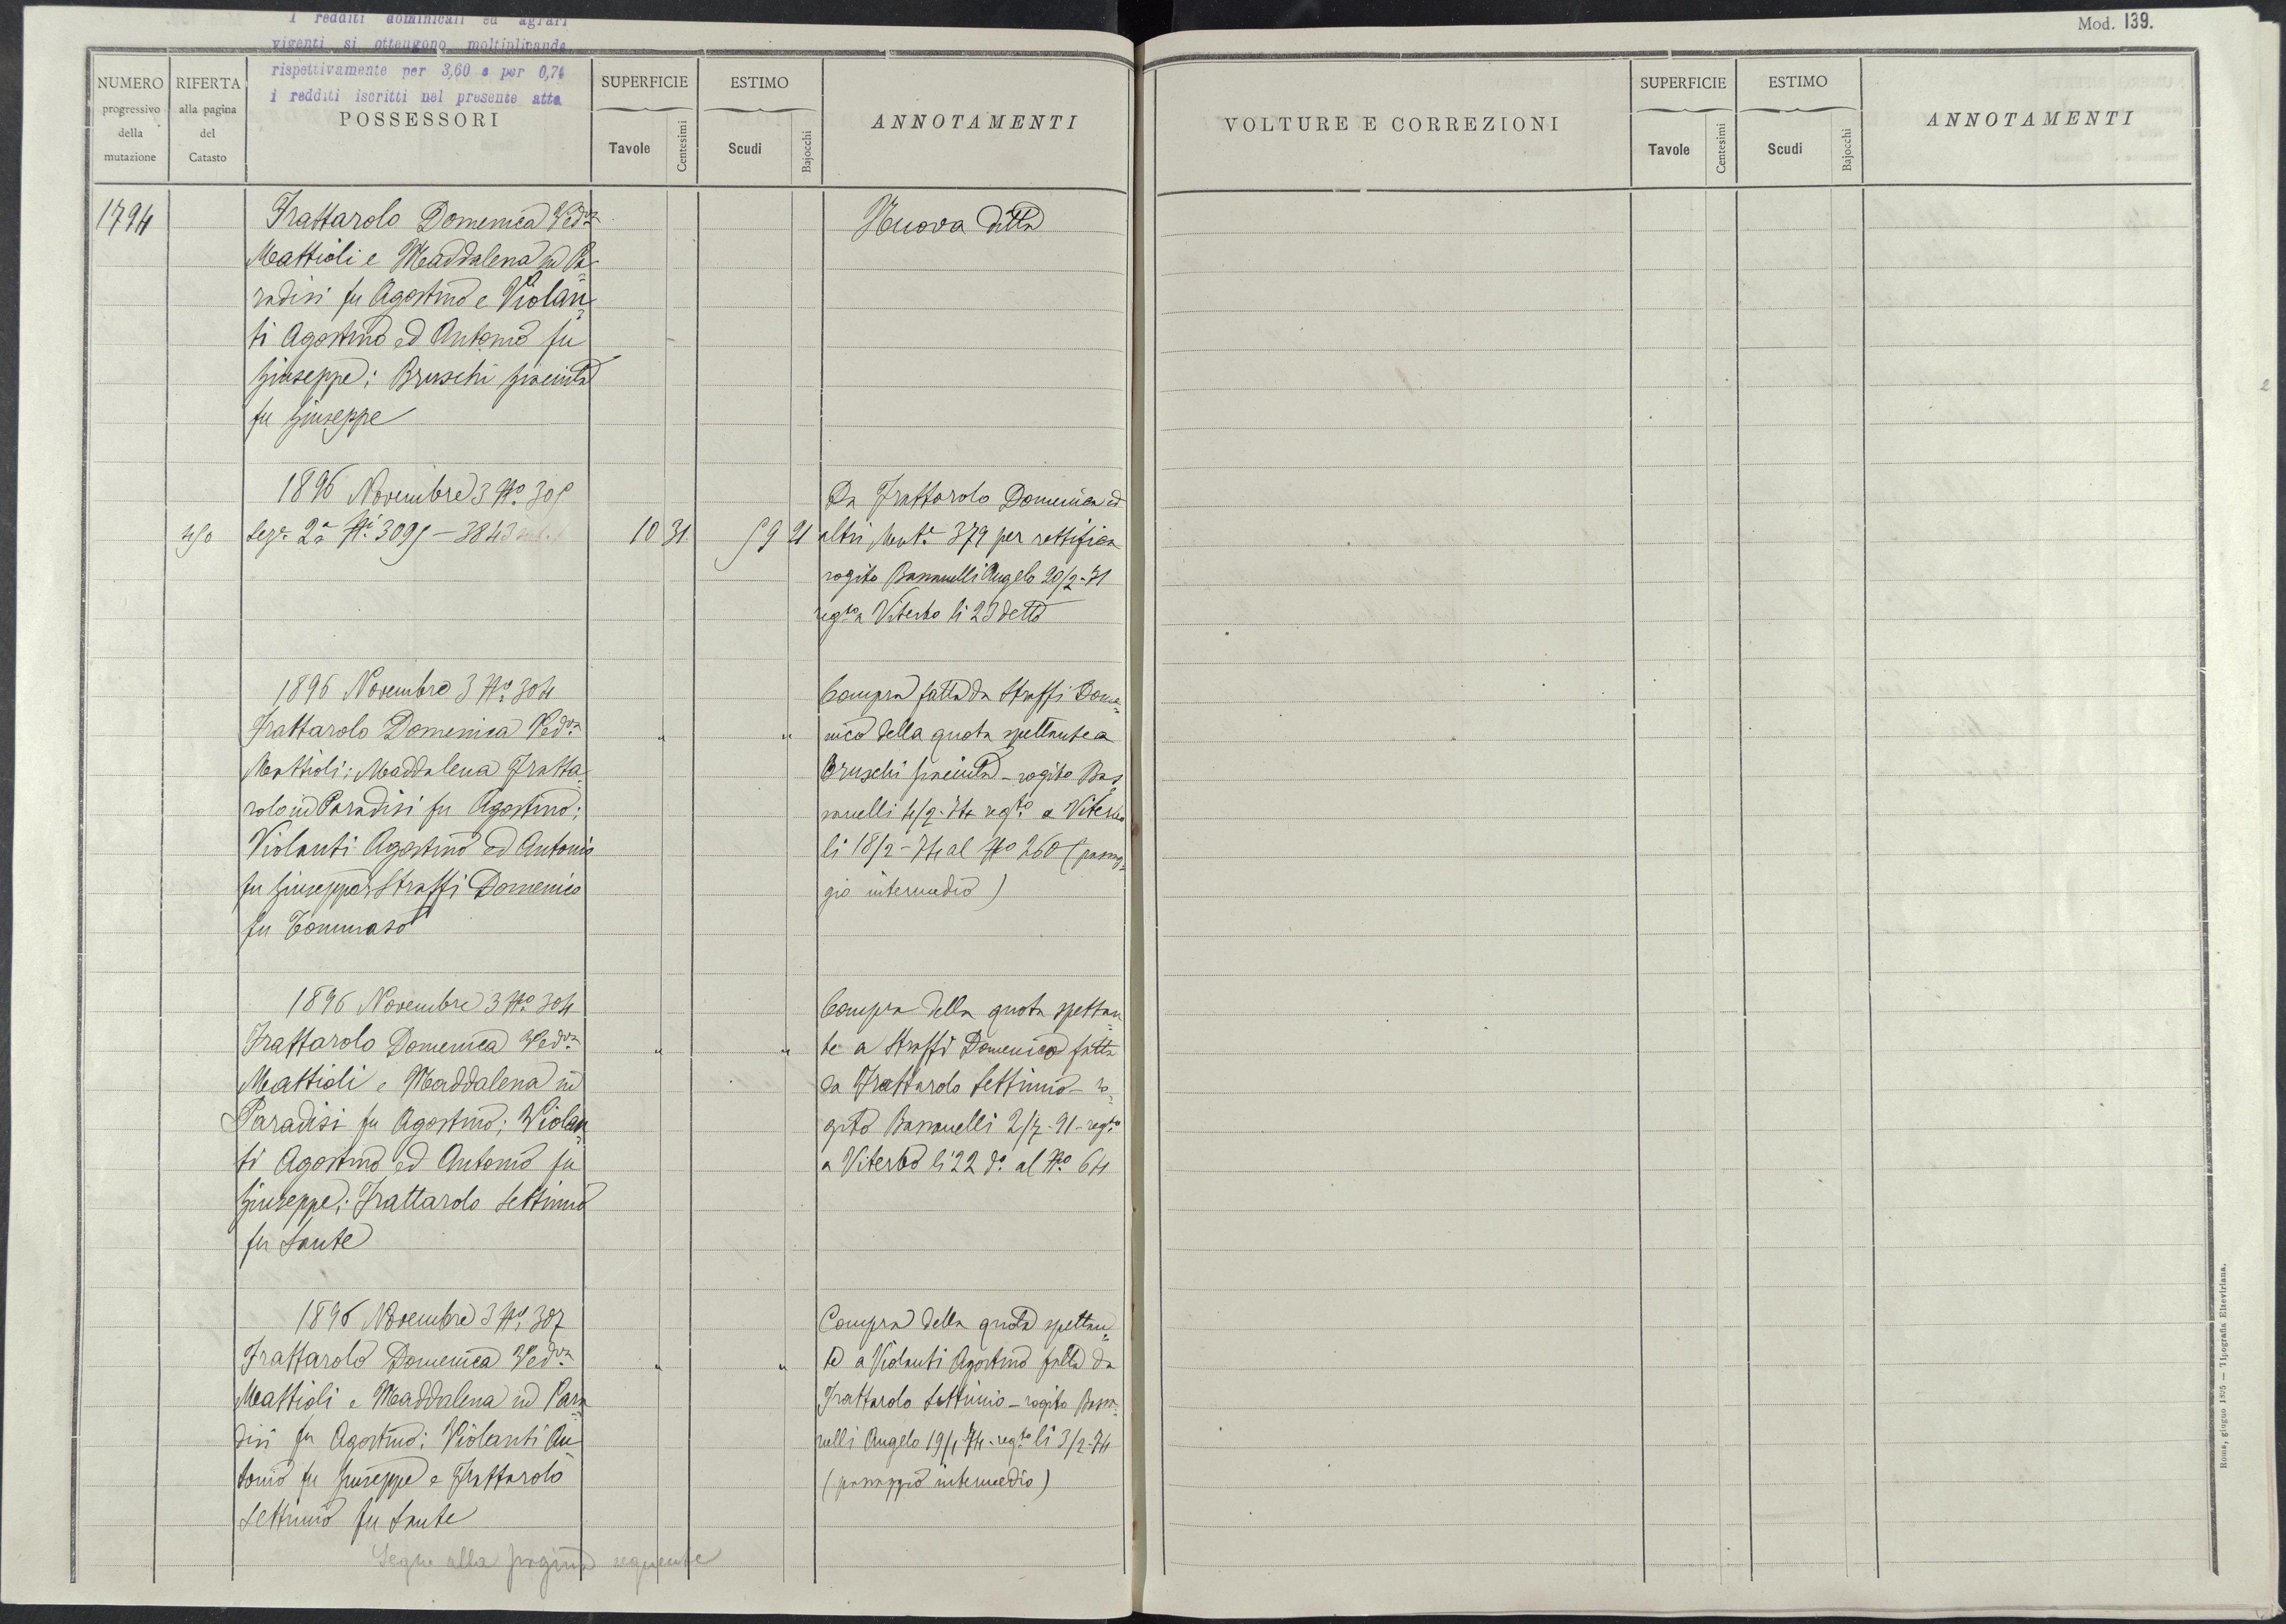 I redditi dominicali ed agrari
vigenti si ottengono moltiplicando
rispettivamente per 3,60 e per 0,74
i redditi iscritti nel presente atto
Mod. 139.
NUMERO
progressivo
della
mutazione
RIFERTA
alla pagina
del
Catasto
POSSESSORI
SUPERFICIE
Tavole
Centesimi
ESTIMO
Scudi
Bajocchi
ANNOTAMENTI
VOLTURE E CORREZIONI
SUPERFICIE
Tavole
Centesimi
ESTIMO
Scudi
Bajocchi
ANNOTAMENTI
1794
Frattarolo Domenica Ved.va
Mattioli e Maddalena in Pa=
radisi fu Agostino e Violan=
ti Agostino ed Antonio fu
Giuseppe; Bruschi Giacinta
fu Giuseppe
Nuova ditta
1896 Novembre 3 No. 305
Sez.e 2a Ni. 3095 - 3843
10 31
59 21
Da Frattarolo Domenica ed
altri Mut.e 379 per rettifica
rogito Bassanelli Angelo 20/2-71
reg.to a Viterbo li 23 detto
1896 Novembre 3 No. 304
Frattarolo Domenica Ved.va
Mattioli; Maddalena Fratta=
rolo in Paradisi fu Agostino;
Violanti Agostino ed Antonio
fu Giuseppe; Straffi Domenico
fu Tommaso
" "
Compra fatta da Straffi Dome=
nico della quota spettante a
Bruschi Giacinta - rogito Bas=
sanelli 4/2-74 reg.to a Viterbo
li 18/2-74 al No 260 (passag=
gio intermedio)
1896 Novembre 3 No. 304
Frattarolo Domenica Ved.va
Mattioli e Maddalena in
Paradisi fu Agostino; Violan=
ti Agostino ed Antonio fu
Giuseppe; Frattarolo Settimio
fu Sante
" "
Compra della quota spettan=
te a Straffi Domenico fatta
da Frattarolo Settimio - ro=
gito Bassanelli 2/7-91 - reg.to
a Viterbo li 22 do. al No. 64
1896 Novembre 3 No. 307
Frattarolo Domenica Ved.va
Mattioli e Maddalena in Para=
disi fu Agostino; Violanti An=
tonio fu Giuseppe e Frattarolo
Settimio fu Sante
" "
Compra della quota spettan=
te a Violanti Agostino fatta da
Frattarolo Settimio - rogito Bassa=
nelli Angelo 19/1-74 - reg.to li 3/2-74
(passaggio intermedio)
Segue alla pagina seguente
Roma, giugno 1895 — Tipografia Elzeviriana.